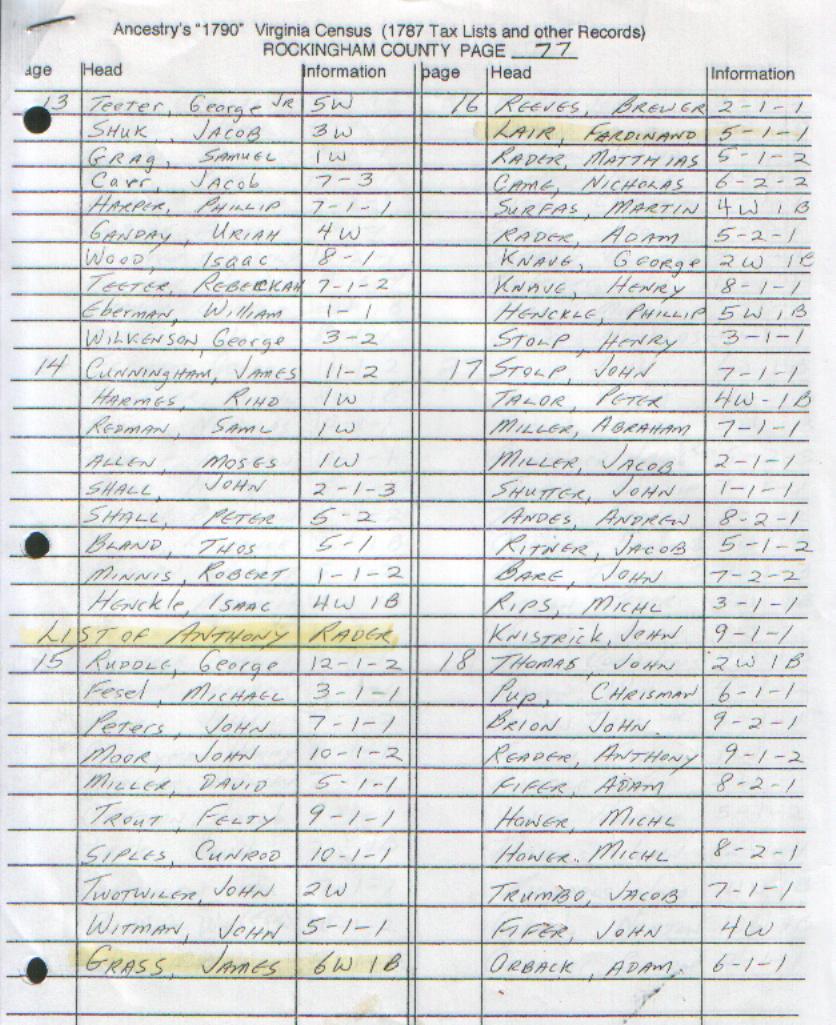 Ancestry's "1790" Virginia Census (1787 Tax Lists and other Records)
ROCKINGHAM COUNTY PAGE 77
age Head Information
13 Teeter, George JR 5W
SHUK, JACOB 3W
GRAG, SAMUEL 1W
Carr, Jacob 7-3
HARPER, PHILLIP 7-1-1
GANDAY, URIAH 4W
WOOD, ISAAC 8-1
TEETER, REBECKAH 7-1-2
Eberman, William 1-1
WILKENSON, George 3-2
14 CUNNINGHAM, JAMES 11-2
HARMES, RIHD 1W
REDMAN, SAML 1W
ALLEN, MOSES 1W
SHALL, JOHN 2-1-3
SHALL, PETER 5-2
BLAND, THOS 5-1
MINNIS, ROBERT 1-1-2
Henckle, ISAAC 4W 1B
LIST OF ANTHONY RADER
15 RUDDLE, George 12-1-2
Fesel, MICHAEL 3-1-1
Peters, JOHN 7-1-1
MOOR, JOHN 10-1-2
MILLER, DAVID 5-1-1
TROUT, FELTY 9-1-1
SIPLES, CUNROD 10-1-1
TWOTWILER, JOHN 2W
WITMAN, JOHN 5-1-1
GRASS, JAMES 6W 1B
page Head Information
16 REEVES, BREWER 2-1-1
LAIR, FARDINAND 5-1-1
RADER, MATTHIAS 5-1-2
CAME, NICHOLAS 6-2-2
SURFAS, MARTIN 4W 1B
RADER, ADAM 5-2-1
KNAVE, George 2W 1B
KNAVE, HENRY 8-1-1
HENCKLE, PHILLIP 5W 1B
STOLP, HENRY 3-1-1
17 STOLP, JOHN 7-1-1
TALOR, PETER 4W-1B
MILLER, ABRAHAM 7-1-1
MILLER, JACOB 2-1-1
SHUTTER, JOHN 1-1-1
ANDES, ANDREW 8-2-1
RITNER, JACOB 5-1-2
BARE, JOHN 7-2-2
RIPS, MICHL 3-1-1
KNISTRICK, JOHN 9-1-1
18 THOMAS, JOHN 2W 1B
Pup, CHRISMAN 6-1-1
BRION JOHN. 9-2-1
READER, ANTHONY 9-1-2
FIFER, ADAM 8-2-1
HOWER, MICHL
HOWER, MICHL 8-2-1
TRUMBO, JACOB 7-1-1
FIFER, JOHN 4W
ORBACK, ADAM 6-1-1